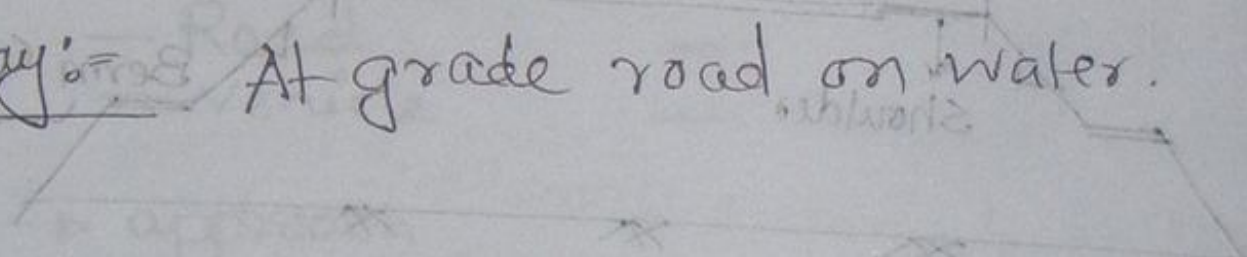 ay:- At grade road on water.